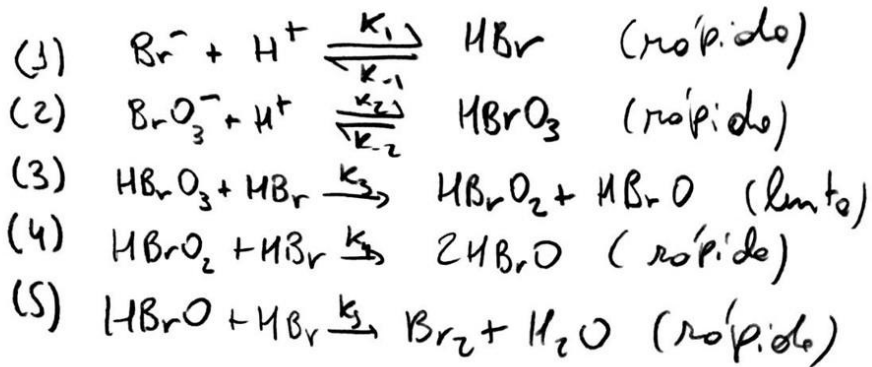 (1) Br⁻ + H⁺ ⇌ HBr (rápido) K₁ K₋₁
(2) BrO₃⁻ + H⁺ ⇌ HBrO₃ (rápido) K₂ K₋₂
(3) HBrO₃ + HBr →K₃ HBrO₂ + HBrO (lento)
(4) HBrO₂ + HBr →K₄ 2HBrO (rápido)
(5) HBrO + HBr →K₅ Br₂ + H₂O (rápido)